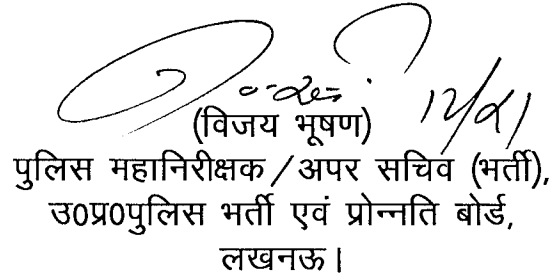 (विजय भूषण)
पुलिस महानिरीक्षक / अपर सचिव (भर्ती),
उ0प्र0पुलिस भर्ती एवं प्रोन्नति बोर्ड,
लखनऊ।